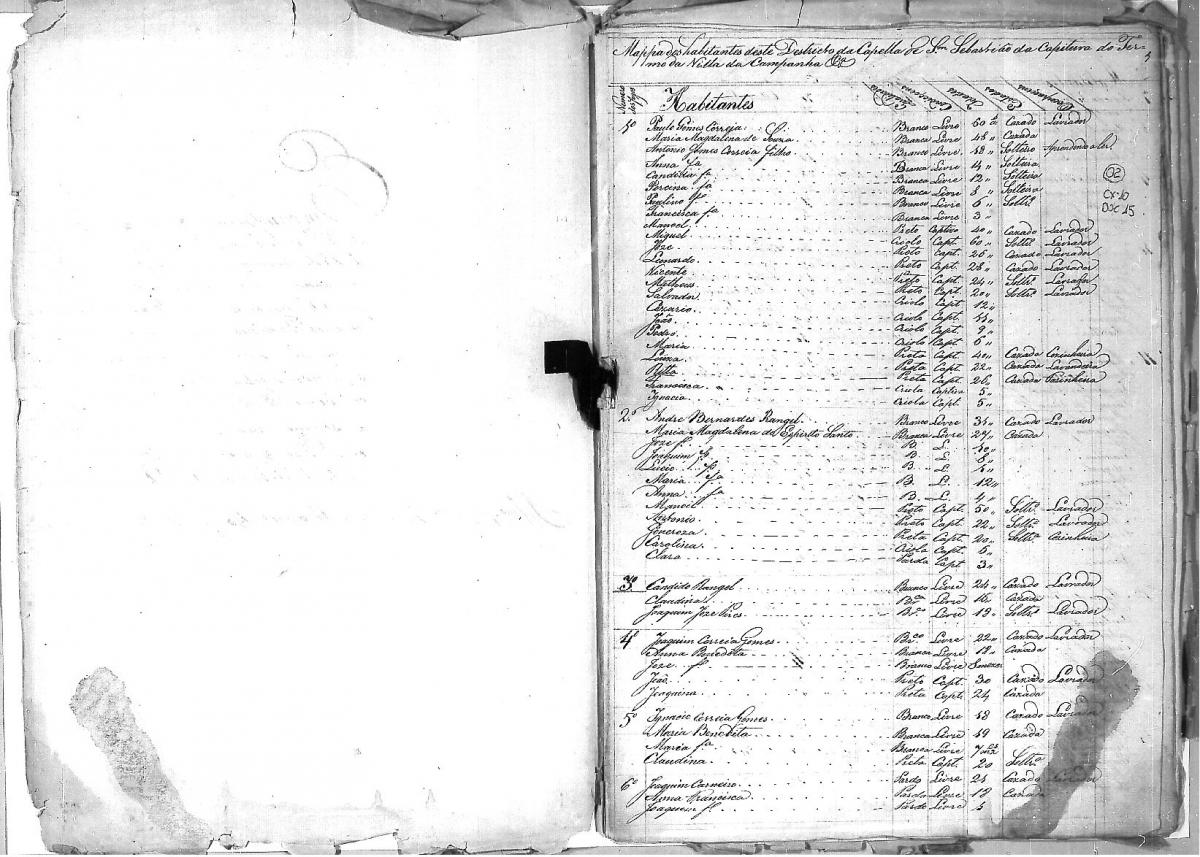 Mappa dos habitantes deste Destricto da Capella de Sm Sebastião da Capitura do Ter-
mo da Villa da Campanha
Numero dos fogos Habitantes Idades Estados
1º Paulo Gomes Correja Branco Livre 50 a. Cazado Lavrador
Maria Magdalena de Souza Branca Livre 48 " Cazada
Antonio Gomes Correia Filho Branco Livre 18 " Solteiro Aprendendo a ler
Anna fa Branca Livre 14 " Solteira
Candidia fa Branca Livre 12 " Solteira
Porcina fa Branca Livre 8 " Solteira
Paulino fo Branco Livre 6 " Soltro
Francisca fa Branca Livre 3 "
Manoel Preto Captivo 40 " Cazado Lavrador
Miguel Criolo Capt. 60 " Soltro Lavrador
Joze Preto Capt. 26 " Cazado Lavrador
Leonardo Preto Capt. 28 " Cazado Lavrador
Vicente Preto Capt. 24 " Soltro Lavrador
Matheus Preto Capt. 20 " Soltro Lavrador
Salvador Criolo Capt. 12 "
Cezario Criolo Capt. 11 "
João Criolo Capt. 9 "
Pedro Criolo Capt. 6 "
Maria Preta Capt. 40 " Cazada Cozinheira
Luiza Preta Capt. 22 " Cazada Lavandeira
Ritta Preta Capt. 26 " Cazada
Francisca Criola Captiva 5 "
Ignacia Criola Capt. 5 "
2º Andre Bernardes Rangel Branco Livre 34 " Cazado Lavrador
Maria Magdalena do Espirito Santo Branca Livre 27 " Cazada
Joze f. B. L. 10 "
Joaquim fo B. L. 8 "
Lucio fo B. L.
Maria fa B. L. 12 "
Anna fa B. L. 4 "
Manoel Preto Capt. 50 " Soltro Lavrador
Antonio Preto Capt. 22 " Soltro Lavrador
Generoza Preta Capt. 20 " Soltra Cozinheira
Carolina Criola Capt. 6 "
Clara Parda Capt. 3 "
3º Candido Rangel Branco Livre 24 " Cazado Lavrador
Claudina Bca Livre 16 " Cazada
Joaquim Joze Pires Bco Livre 19 " Soltro Lavrador
4º Joaquim Correia Gomes Brco Livre 22 " Cazado Lavrador
Anna Benedita Branca Livre 18 " Cazada
Joze fo Branco Livre 8 mezes
João Preto Capt. 30 Cazado Lavrador
Joaquina Preta Capt. 24 Cazada
5º Ignacio Correia Gomes Branco Livre 48 Cazado Lavrador
Maria Benedita Branca Livre 49 Cazada
Maria fa Branca Livre 7
Claudina Preta Capt. 20 Soltra
6º Joaquim Carneiro Pardo Livre 24 Cazado Lavrador
Anna Francisca Parda Livre 19 Cazada
Joaquim fo Pardo Livre 5
02
CX-10
DOC 15